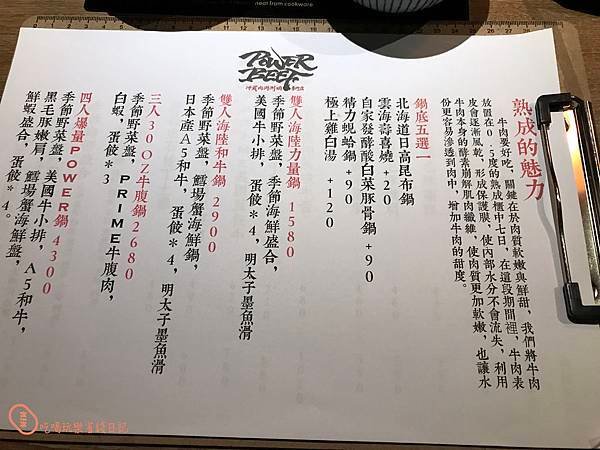 neat from cookware
POWER
BEEF
熟成的魅力
牛肉要好吃，關鍵在於肉質軟嫩與鮮甜，我們將牛肉
放置在0.5度的熟成櫃中七日，在這段期間裡，牛肉表
皮會逐漸風乾，形成保護膜，使內部水分不會流失，利用
牛肉本身的酵素崩解肌肉纖維，使肉質更加軟嫩，也讓水
份更容易滲透到肉中，增加牛肉的甜度。
鍋底五選一
北海道日高昆布鍋
雲海壽喜燒+20
自家發酵酸白菜豚骨鍋+90
精力蜆蛤鍋+90
極上雞白湯+120
雙人海陸力量鍋 1580
季節野菜盤，季節海鮮盛合，
美國牛小排，蛋餃*4，明太子墨魚滑
雙人海陸和牛鍋 2900
季節野菜盤，鱈場蟹海鮮鍋，
日本產A5和牛，蛋餃*4，明太子墨魚滑
三人30 OZ牛腹鍋 2680
季節野菜盤，PRIME牛腹肉，
白蝦，蛋餃*3
四人爆量POWER鍋 4300
季節野菜盤，美國牛小排，A5和牛，
黑毛豚嫩肩，鱈場蟹海鮮盤，
鮮蝦盛合，蛋餃*4。
吃喝玩樂蓋棧日記